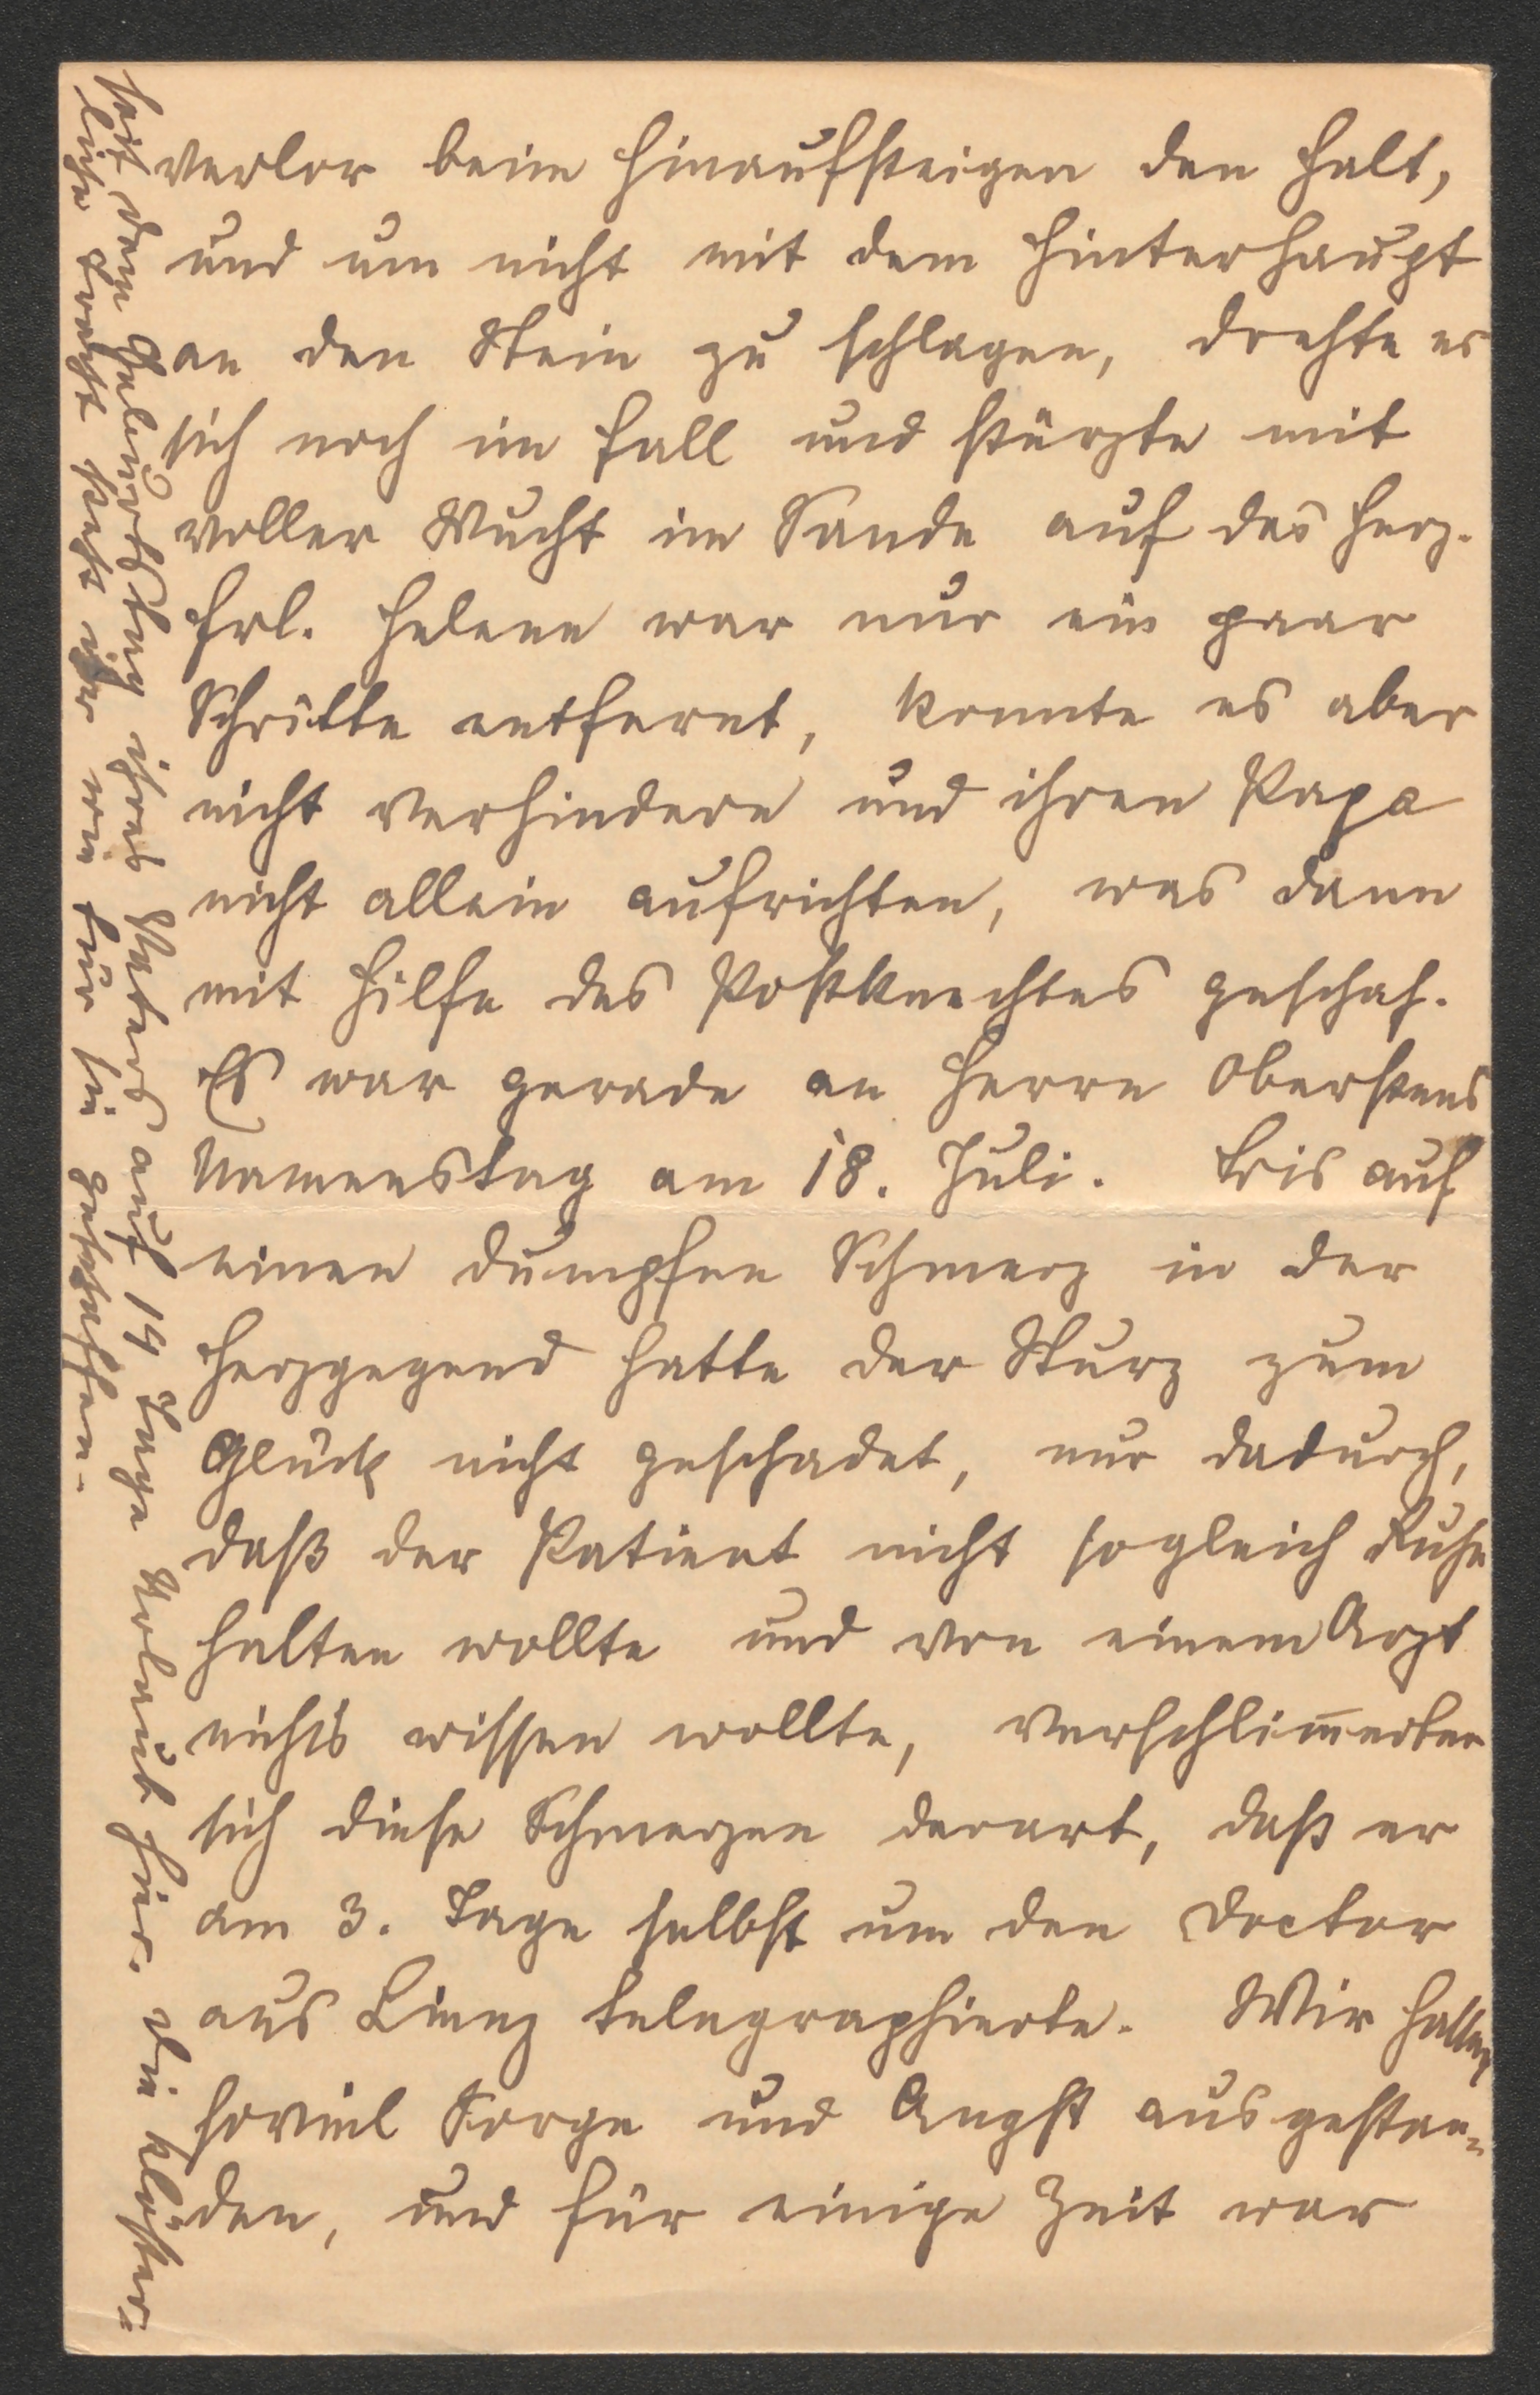 verlor beim Hinaufsteigen den Halt,
und um nicht mit dem Hinterhaupt
an den Stein zu schlagen, drehte er
sich noch im Fall und stürzte mit
voller Wucht im Sande auf das Herz.
Frl. Helene war nur ein paar
Schritte entfernt, konnte es aber
nicht verhindern und ihren Papa
nicht allein aufrichten, was dann
mit Hilfe des Postknechtes geschah.
Es war gerade an Herrn Oberstens
Namenstag am 18. Juli. Bis auf
einen dumpfen Schmerz in der
Herzgegend hatte der Sturz zum
Glück nicht geschadet, nur dadurch,
daß der Patient nicht sogleich Ruhe
halten wollte und von einem Arzt
nichts wissen wollte, verschlim̅erten
sich diese Schmerzen derart, daß er
am 3. Tage selbst um den Doctor
aus Lienz telegraphierte. Wir hatten
soviel Sorge und Angst ausgestan„
den, und für einige Zeit war
seit dem Geburtstag ihres Vaters auf 14 Tage Urlaub hier. Die klöster„
liche Tracht steht ihr wie für sie geschaffen.